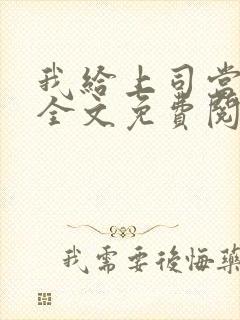 我給上司當
全文免費閱
我需要後悔藥